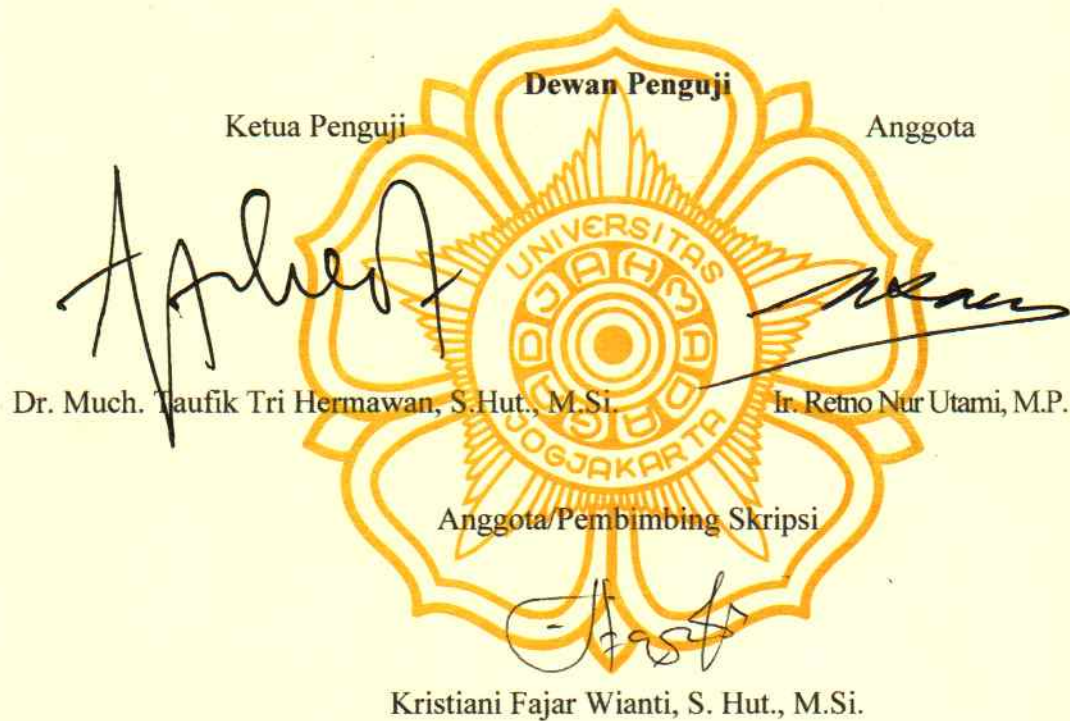 Dewan Penguji
Ketua Penguji Anggota
UNIVERSITAS
GADJAH MADA
JOGJAKARTA
Dr. Much. Taufik Tri Hermawan, S.Hut., M.Si. Ir. Retno Nur Utami, M.P.
Anggota/Pembimbing Skripsi
Kristiani Fajar Wianti, S. Hut., M.Si.